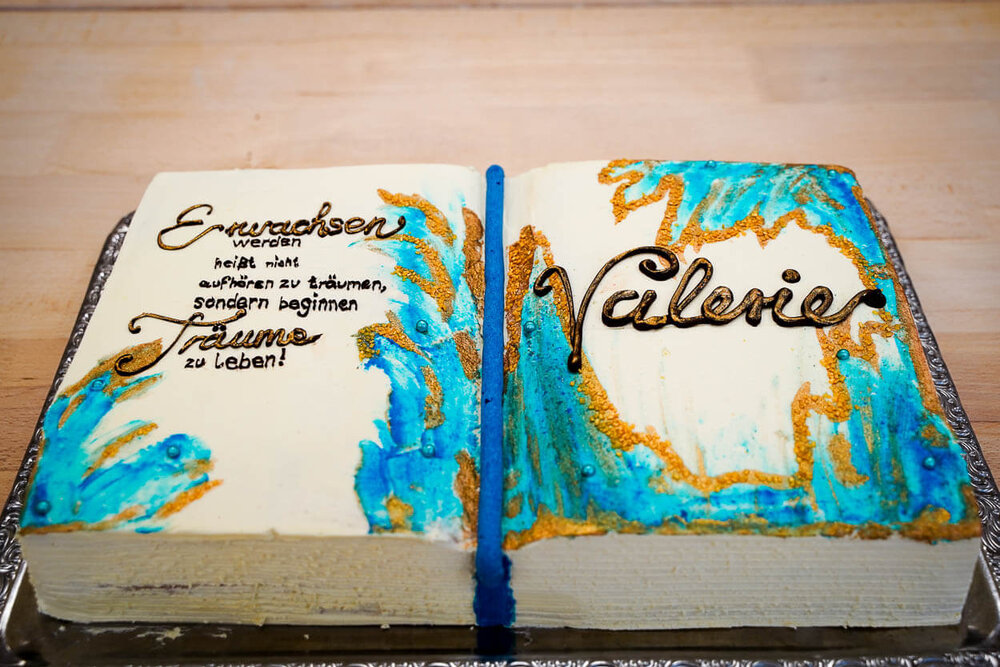 Erwachsen
werden
heißt nicht
aufhören zu träumen,
sondern beginnen
Träume
zu leben!
Valerie